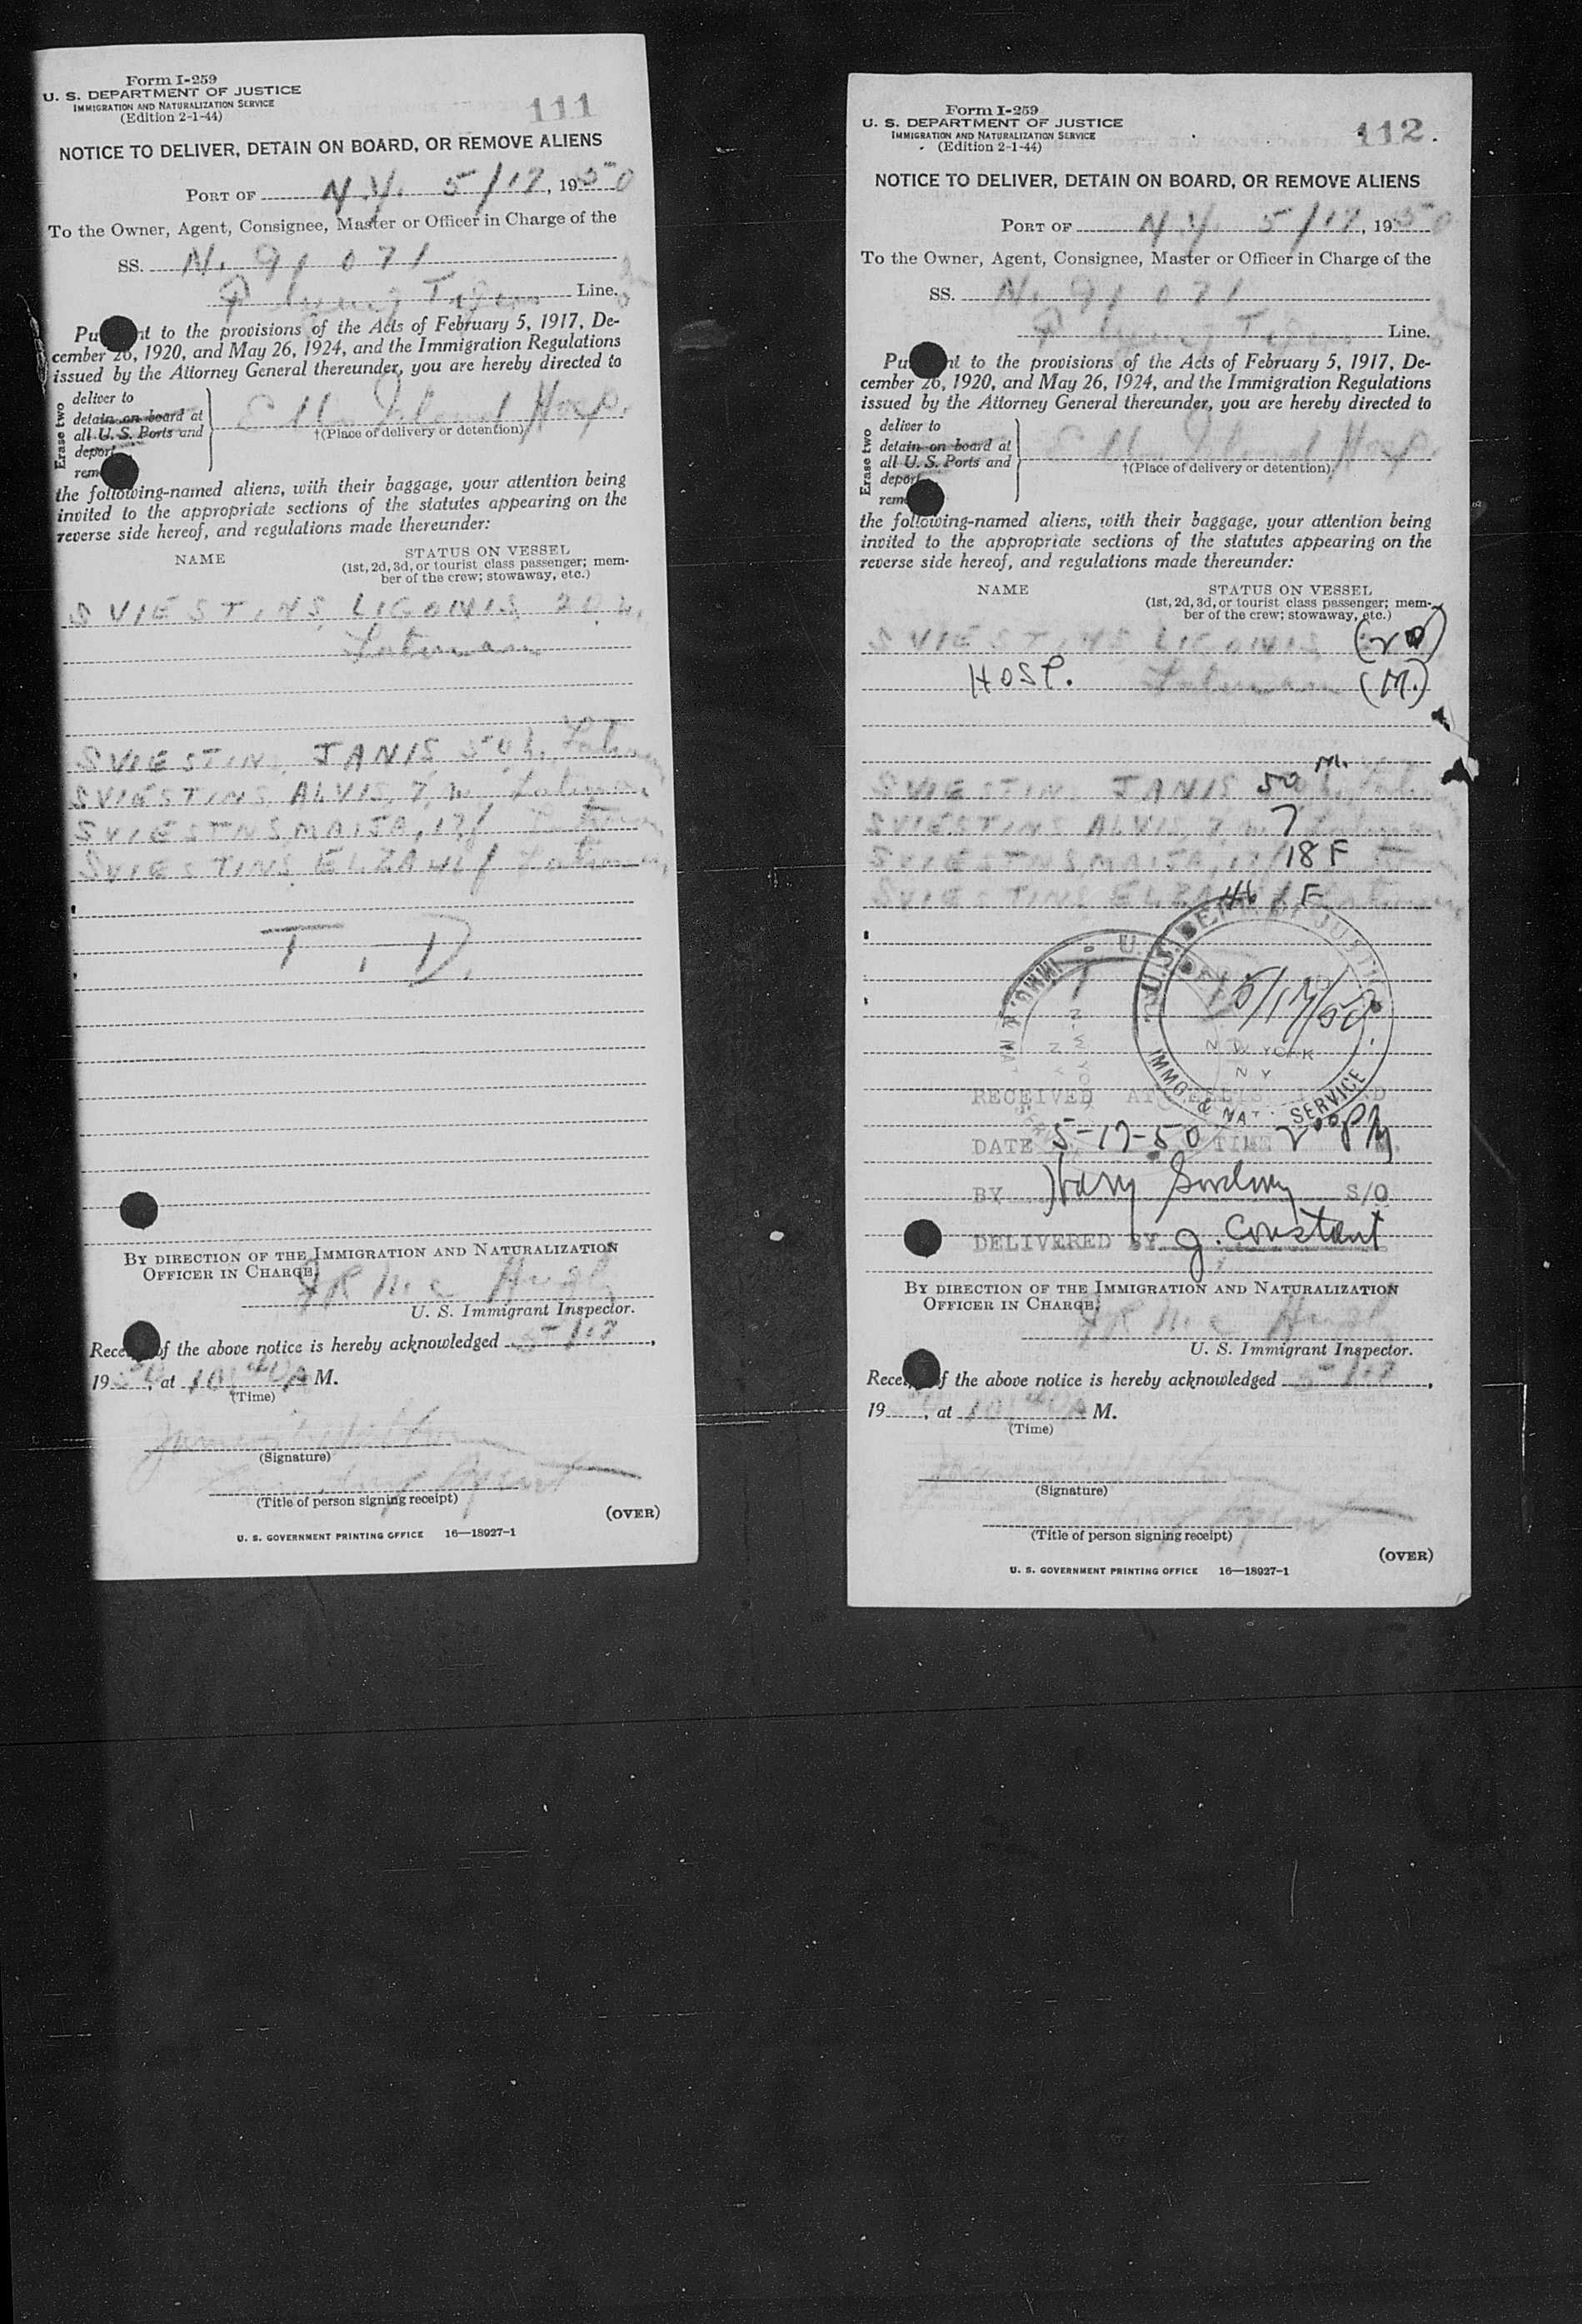 Form I-259
U. S. DEPARTMENT OF JUSTICE
IMMIGRATION AND NATURALIZATION SERVICE
(Edition 2-1-44)
111
NOTICE TO DELIVER, DETAIN ON BOARD, OR REMOVE ALIENS
PORT OF N.Y. 5/17, 1950
To the Owner, Agent, Consignee, Master or Officer in Charge of the
SS. N. 91071
Flying Tigers Line.
Pu nt to the provisions of the Acts of February 5, 1917, De-
cember 26, 1920, and May 26, 1924, and the Immigration Regulations
issued by the Attorney General thereunder, you are hereby directed to
Erase two
deliver to
detain on board at
all U. S. Ports and
deport
rem
Ellis Island Hosp.
†(Place of delivery or detention)
the following-named aliens, with their baggage, your attention being
invited to the appropriate sections of the statutes appearing on the
reverse side hereof, and regulations made thereunder:
NAME STATUS ON VESSEL
(1st, 2d, 3d, or tourist class passenger; mem-
ber of the crew; stowaway, etc.)
SVIESTINS, LIGONIS 20
SVIESTINS, JANIS 50
SVIESTINS ALVIS, 7, m
SVIESTNS, MAIJA, 17 f
SVIESTINS ELZA 46 f
T. D.
BY DIRECTION OF THE IMMIGRATION AND NATURALIZATION
OFFICER IN CHARGE,
U. S. Immigrant Inspector.
Rece of the above notice is hereby acknowledged 5-17,
1950, at 10:40 A M.
(Time)
(Signature)
Agent
(Title of person signing receipt)
(OVER)
U. S. GOVERNMENT PRINTING OFFICE 16—18927-1
Form I-259
U. S. DEPARTMENT OF JUSTICE
IMMIGRATION AND NATURALIZATION SERVICE
(Edition 2-1-44)
112.
NOTICE TO DELIVER, DETAIN ON BOARD, OR REMOVE ALIENS
PORT OF N.Y. 5/17, 1950
To the Owner, Agent, Consignee, Master or Officer in Charge of the
SS. N. 91071
Flying Tigers Line.
Pu nt to the provisions of the Acts of February 5, 1917, De-
cember 26, 1920, and May 26, 1924, and the Immigration Regulations
issued by the Attorney General thereunder, you are hereby directed to
Erase two
deliver to
detain on board at
all U. S. Ports and
deport
rem
Ellis Island Hosp.
†(Place of delivery or detention)
the following-named aliens, with their baggage, your attention being
invited to the appropriate sections of the statutes appearing on the
reverse side hereof, and regulations made thereunder:
NAME STATUS ON VESSEL
(1st, 2d, 3d, or tourist class passenger; mem-
ber of the crew; stowaway, etc.)
SVIESTINS LIGONIS (20)
HOSP. (M.)
SVIESTINS JANIS 50 M.
SVIESTINS ALVIS, 7
SVIESTNS, MAIJA, 18 F
SVIESTINS ELZA 46 F
U.S. DEPT. OF JUSTICE
5/17/50
NEW YORK
N Y
IMMG. & NAT. SERVICE
RECEIVED AT ELLIS ISLAND
DATE 5-17-50 TIME 2:00 PM
BY Harry S/O
DELIVERED BY J. Constant
BY DIRECTION OF THE IMMIGRATION AND NATURALIZATION
OFFICER IN CHARGE,
U. S. Immigrant Inspector.
Rece of the above notice is hereby acknowledged 5-17,
1950, at 10:40 A M.
(Time)
(Signature)
Agent
(Title of person signing receipt)
(OVER)
U. S. GOVERNMENT PRINTING OFFICE 16—18927-1